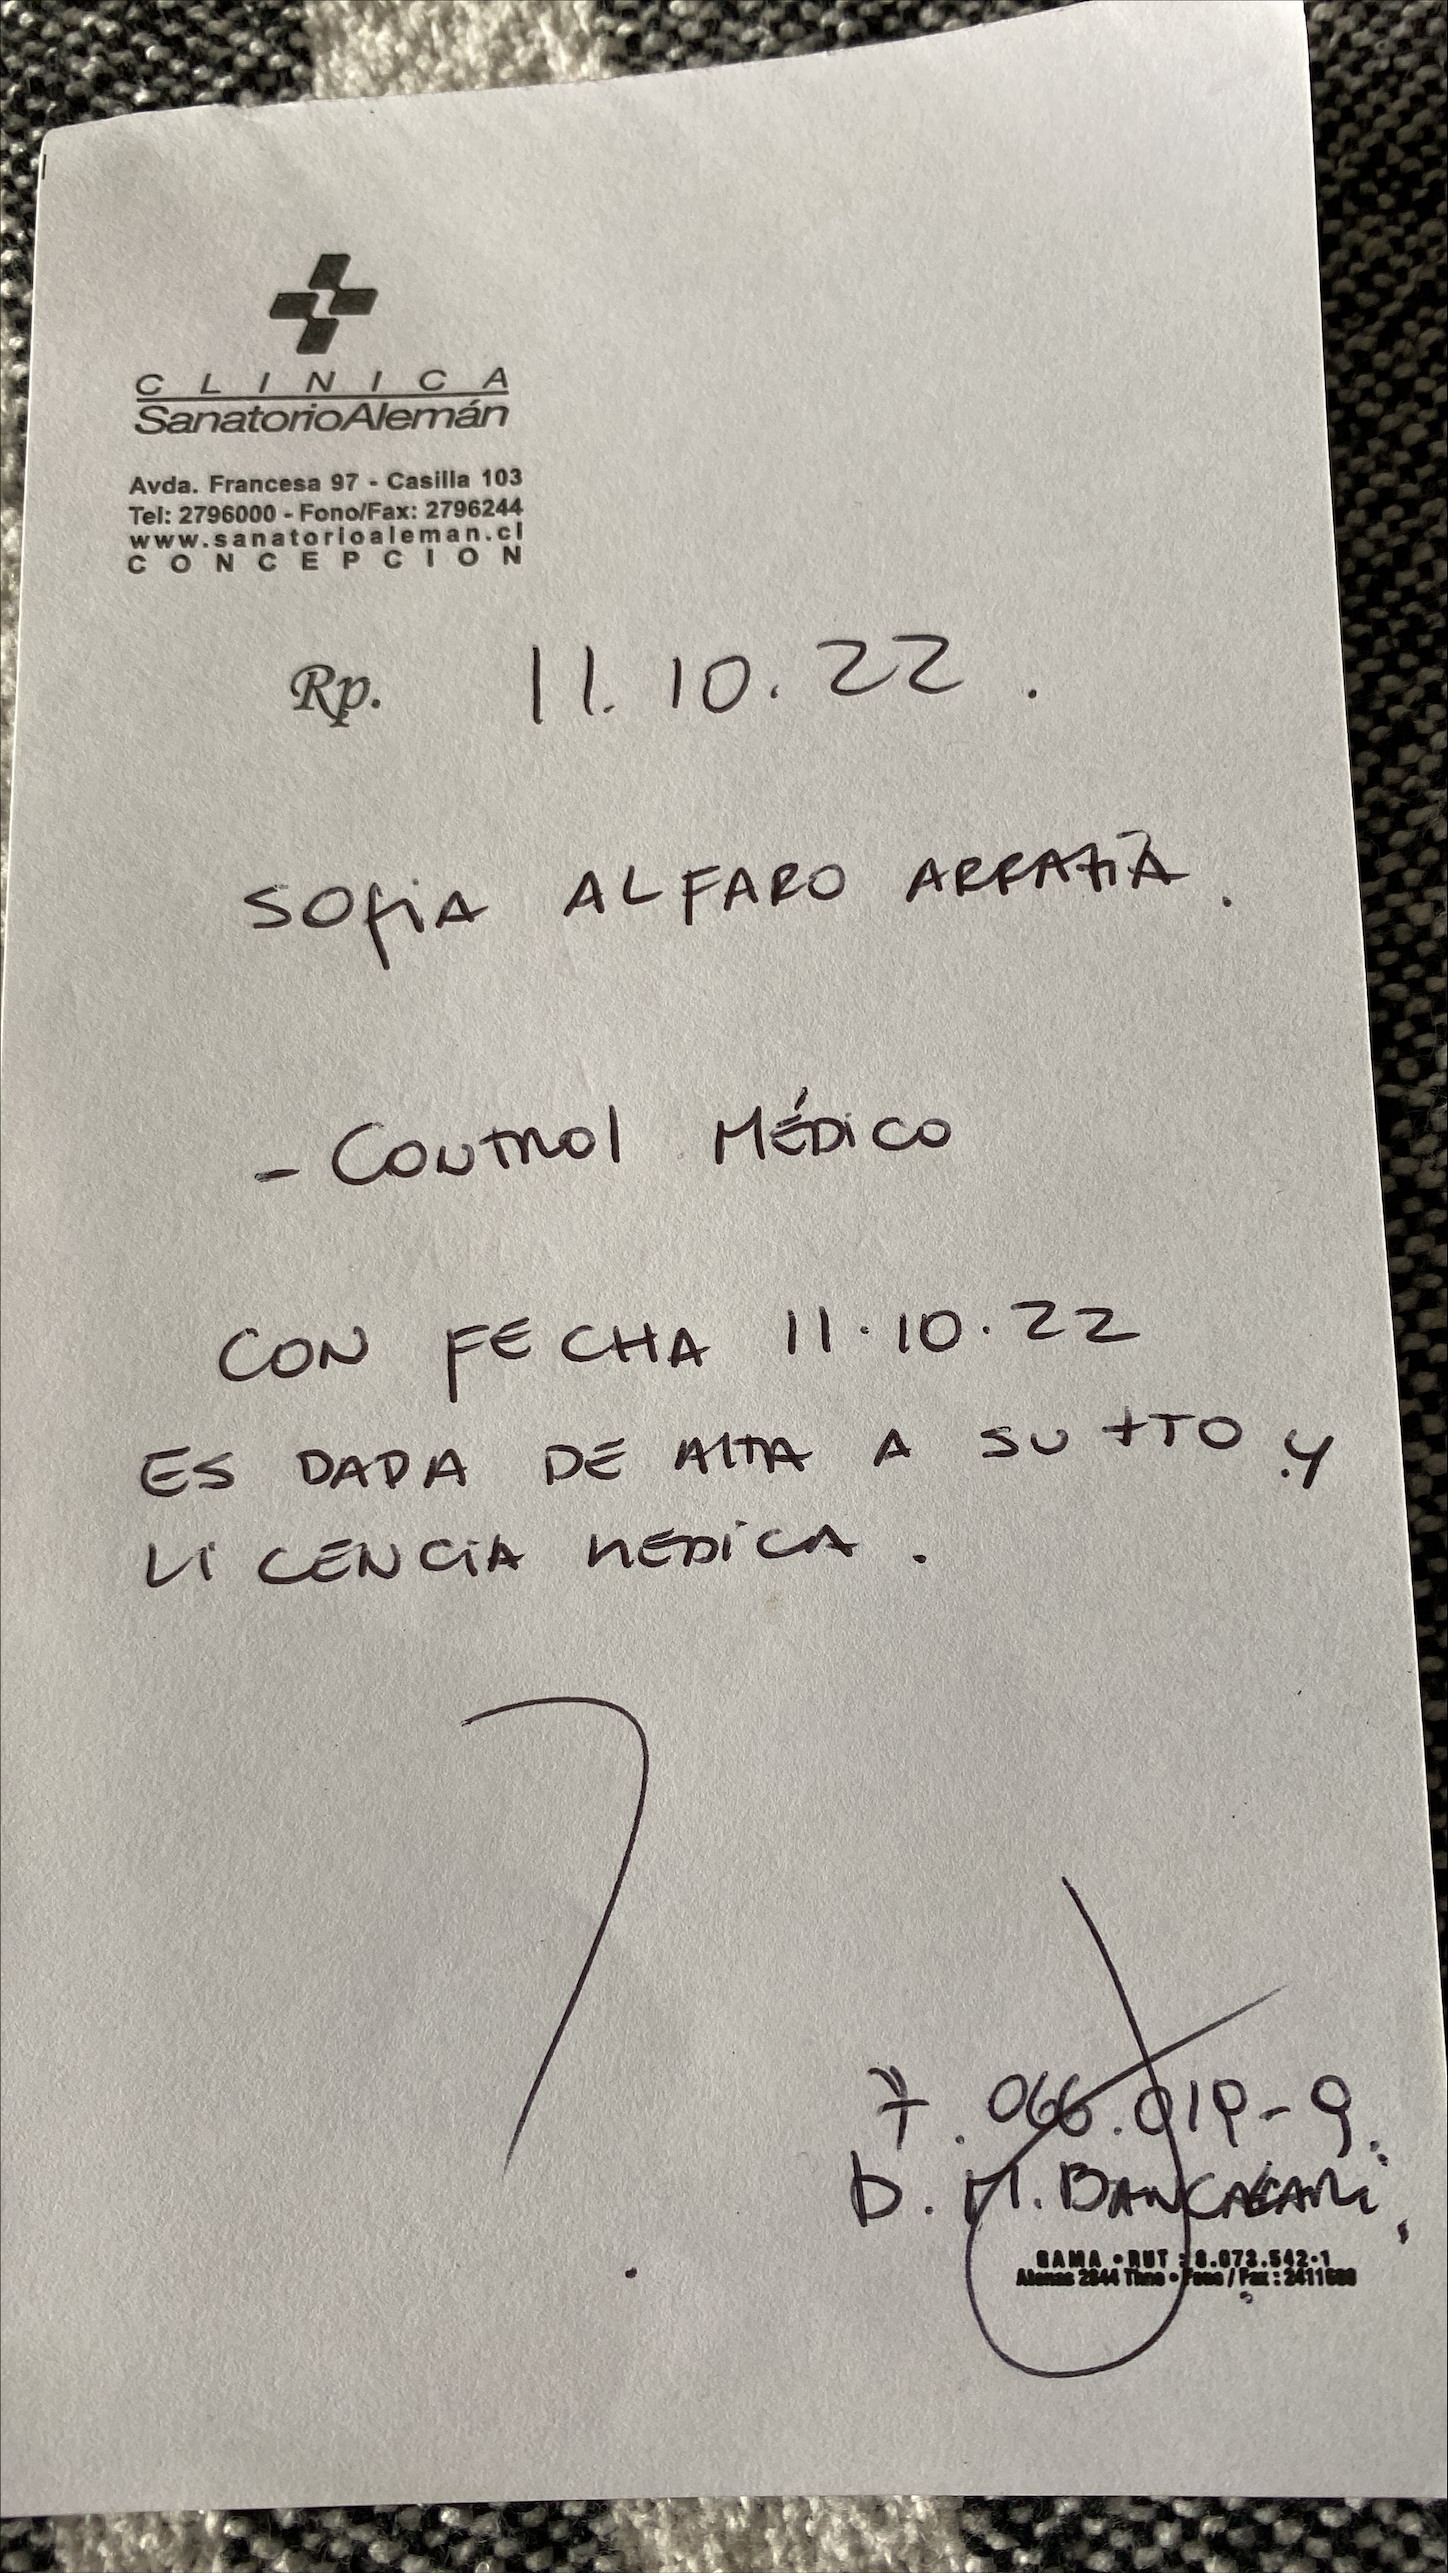 CLINICA
SanatorioAlemán
Avda. Francesa 97 - Casilla 103
Tel: 2796000 - Fono/Fax: 2796244
www.sanatorioaleman.cl
CONCEPCION
Rp. 11.10.22.
SOfiA ALFARO
- CONTROl MÉDiCO
CON FECHA 11.10.22
ES DADA DE AlTA A SU tTO y
LiCENCiA MEDiCA.
7.066.019-9.
D. M.
GAMA • RUT : 8.073.542-1
Atenas